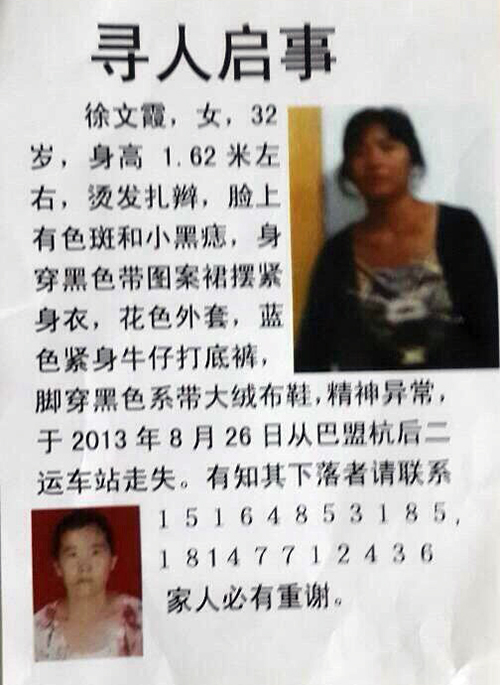 寻人启事
徐文霞，女，32
岁，身高 1.62 米左
右，烫发扎辫，脸上
有色斑和小黑痣，身
穿黑色带图案裙摆紧
身衣，花色外套，蓝
色紧身牛仔打底裤，
脚穿黑色系带大绒布鞋，精神异常，
于 2013 年 8 月 26 日从巴盟杭后二
运车站走失。有知其下落者请联系
15164853185，
18147712436
家人必有重谢。